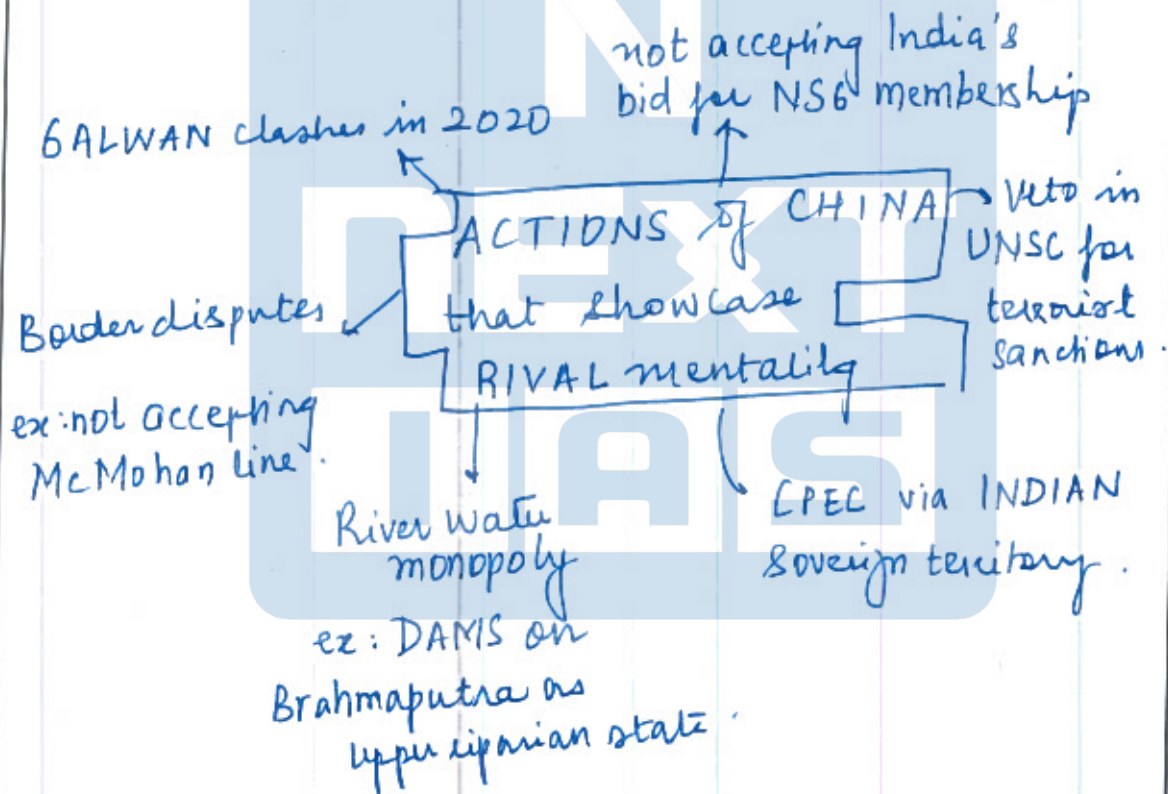 not accepting India's
bid for NSG membership
GALWAN clashes in 2020
ACTIONS of CHINA
that showcase
RIVAL mentality
Veto in
UNSC for
terrorist
sanctions.
Border disputes
ex: not accepting
McMohan line.
River water
monopoly
ex: DAMS on
Brahmaputra as
upper riparian state.
CPEC via INDIAN
soverign territory.
N
NEXT
IAS